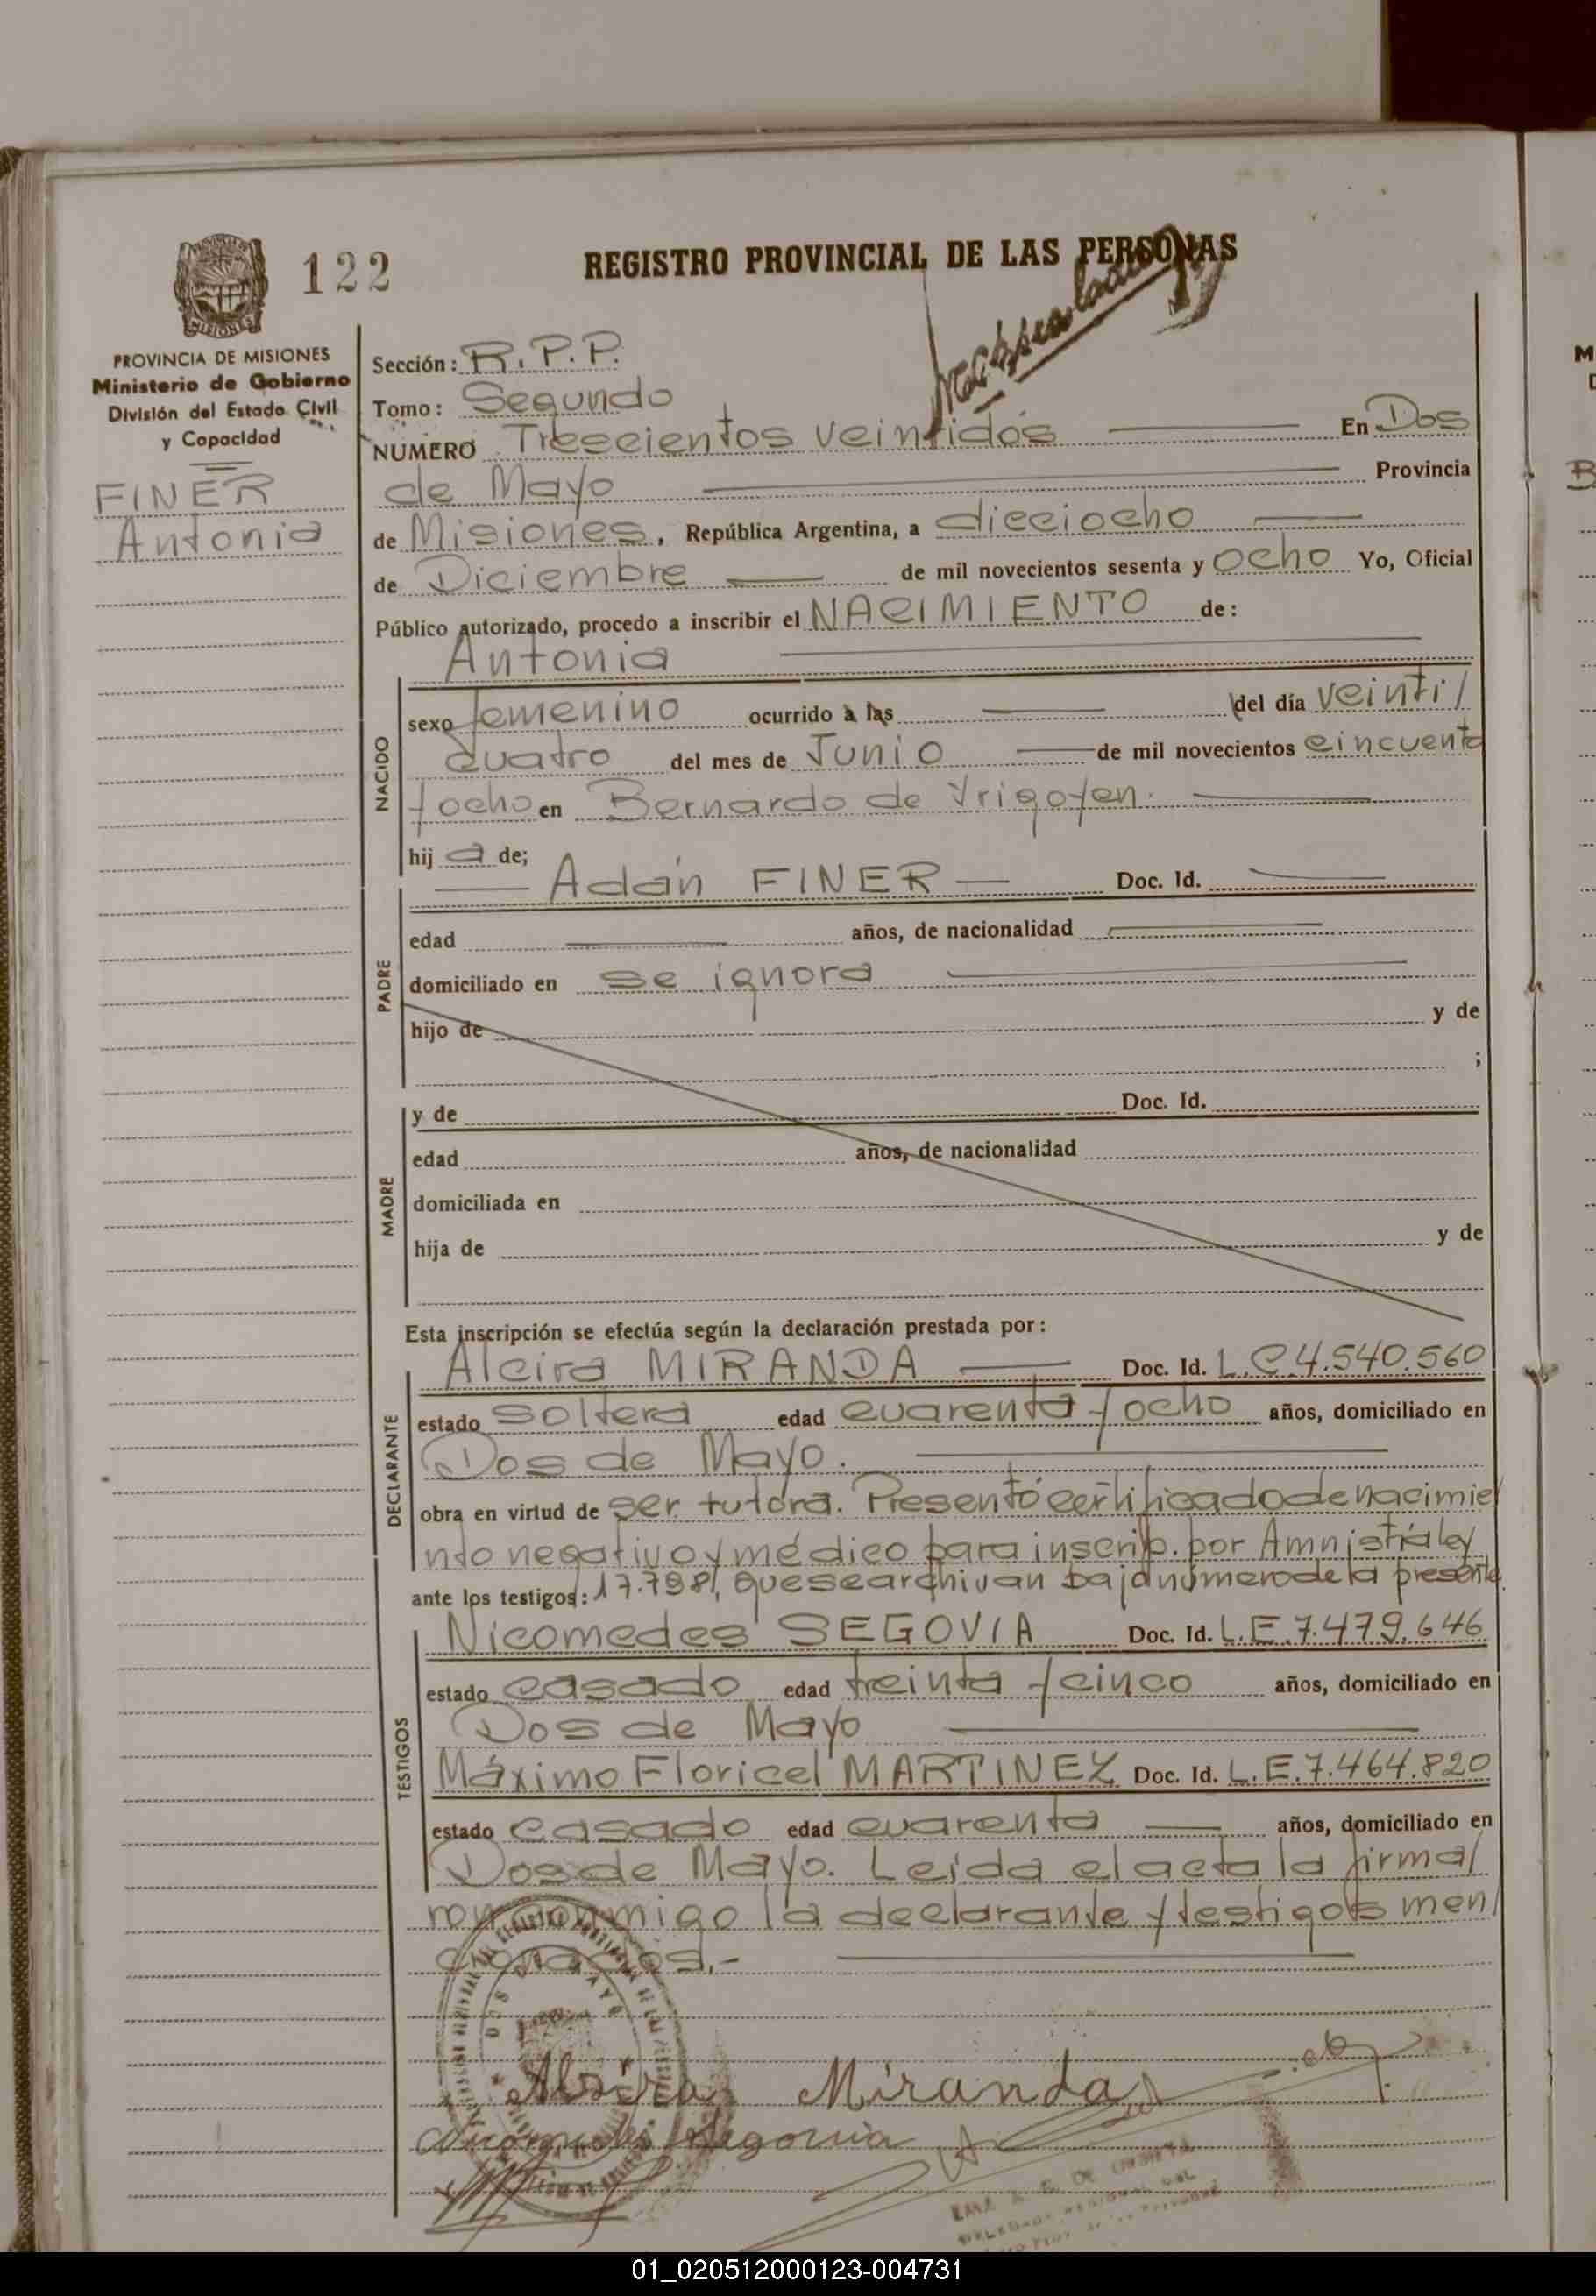 122
REGISTRO PROVINCIAL DE LAS PERSONAS
MISIONES
PROVINCIA DE MISIONES
Ministerio de Gobierno
División del Estado Civil
y Capacidad
FINER
Antonia
Sección: R.P.P.
Tomo: Segundo
NUMERO Trescientos veintidós En Dos
de Mayo Provincia
de Misiones, República Argentina, a dieciocho
de Diciembre de mil novecientos sesenta y ocho Yo, Oficial
Público autorizado, procedo a inscribir el NACIMIENTO de:
Antonia
NACIDO
sexo femenino ocurrido a las del día veinti/
cuatro del mes de Junio de mil novecientos cincuenta
y ocho en Bernardo de Yrigoyen.
hij a de;
Adán FINER Doc. Id.
PADRE
edad años, de nacionalidad
domiciliado en se ignora
hijo de y de
;
MADRE
y de Doc. Id.
edad años, de nacionalidad
domiciliada en
hija de y de
Esta inscripción se efectúa según la declaración prestada por:
DECLARANTE
Alcira MIRANDA Doc. Id. L.C.4.540.560
estado soltera edad cuarenta y ocho años, domiciliado en
Dos de Mayo.
obra en virtud de ser tutora. Presentó certificado de nacimie/
nto negativo y médico para inscrip. por Amnistía ley
ante los testigos: 17.798/, que se archivan bajo número de la presente.
TESTIGOS
Nicomedes SEGOVIA Doc. Id. L.E.7.479.646
estado casado edad treinta y cinco años, domiciliado en
Dos de Mayo
Máximo Floricel MARTINEZ Doc. Id. L.E.7.464.820
estado casado edad cuarenta años, domiciliado en
Dos de Mayo. Leída el acta la firma/
ron conmigo la declarante y testigos men/
cionados.-
Alsira Miranda
Segovia
01_020512000123-004731